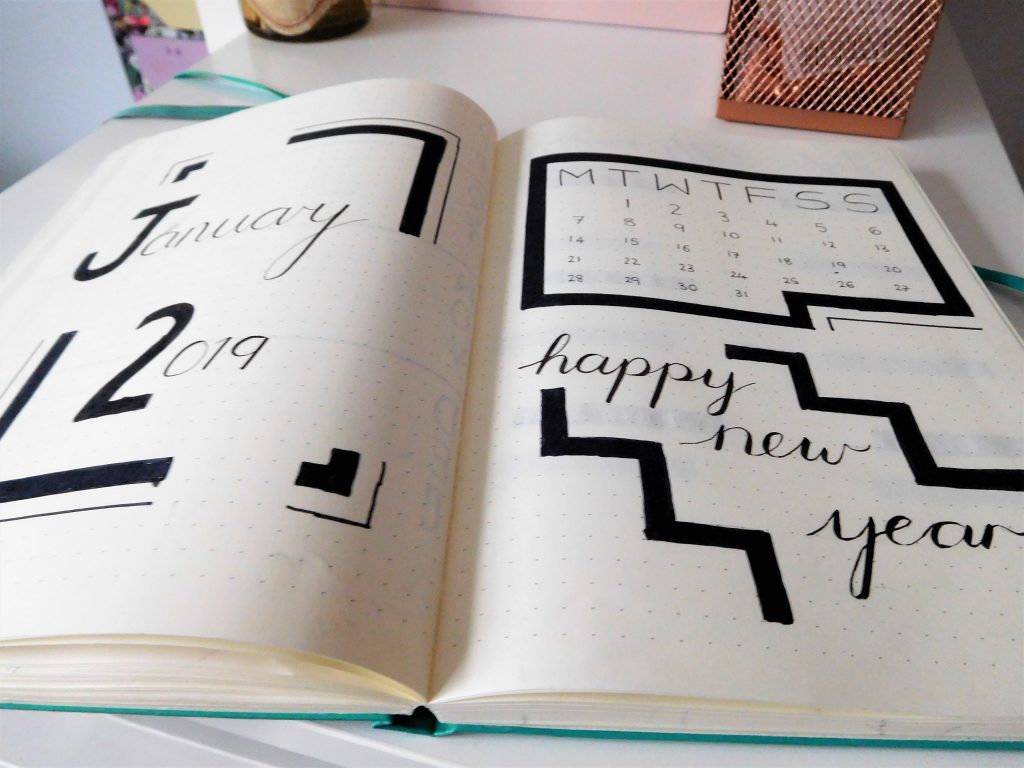 January
2019
M T W T F S S
1 2 3 4 5 6
7 8 9 10 11 12 13
14 15 16 17 18 19 20
21 22 23 24 25 26 27
28 29 30 31
happy
new
year